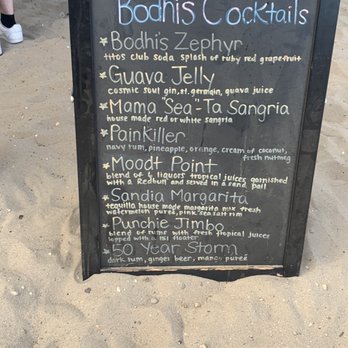 Bodhi's Cocktails
* Bodhi's Zephyr
titos club soda splash of ruby red grapefruit
* Guava Jelly
cosmic soul gin, st. germain, guava juice
* Mama "Sea"-Ta Sangria
house made red or white sangria
* PainKiller
navy rum, pineapple, orange, cream of coconut,
fresh nutmeg
* Moodt Point
blend of 4 liquors tropical juices garnished
with a Redbull and served in a sand pail
* Sandia Margarita
tequilla house made margarita mix fresh
watermelon puree, pink sea salt rim
* Punchie Jimbo
blend of rums with fresh tropical juices
topped with a 151 floater
* 50 Year Storm
dark rum, ginger beer, mango puree